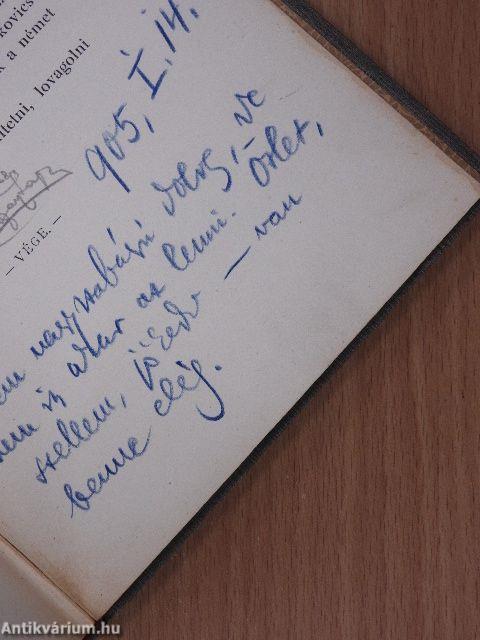 kovics
k a német
lletni, lovagolni
— VÉGE. —
905, I. 14.
em nagyszabású dolog, – de
nem is akar az lenni. Ötlet,
szellem, – van
benne elég.
Antikvárium.hu